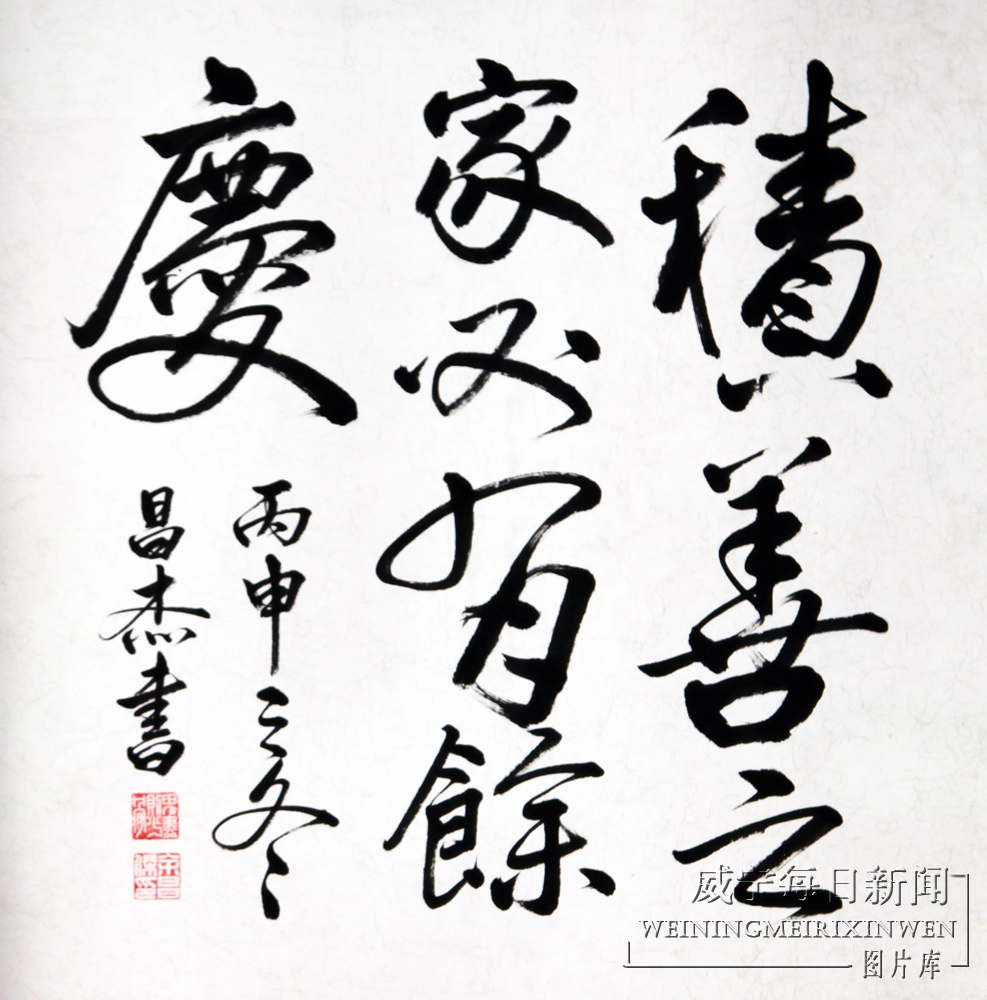 積善之
家必有餘
慶
丙申三冬
昌杰書
威宁每日新闻
WEININGMEIRIXINWEN
图片库